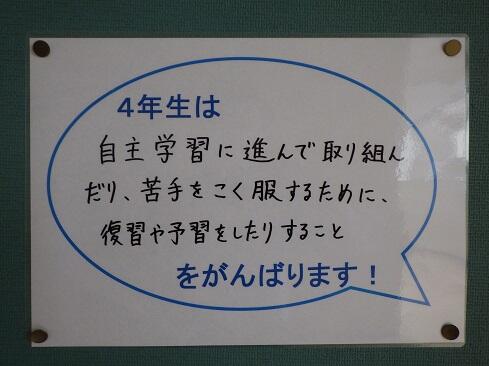 4年生は
自主学習に進んで取り組ん
だり、苦手をこく服するために、
復習や予習をしたりすること
をがんばります！